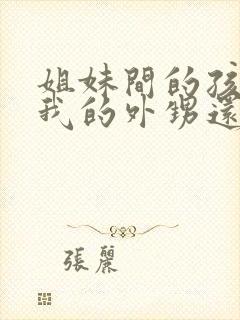 姐妹間的孩
我的外甥還
張麗